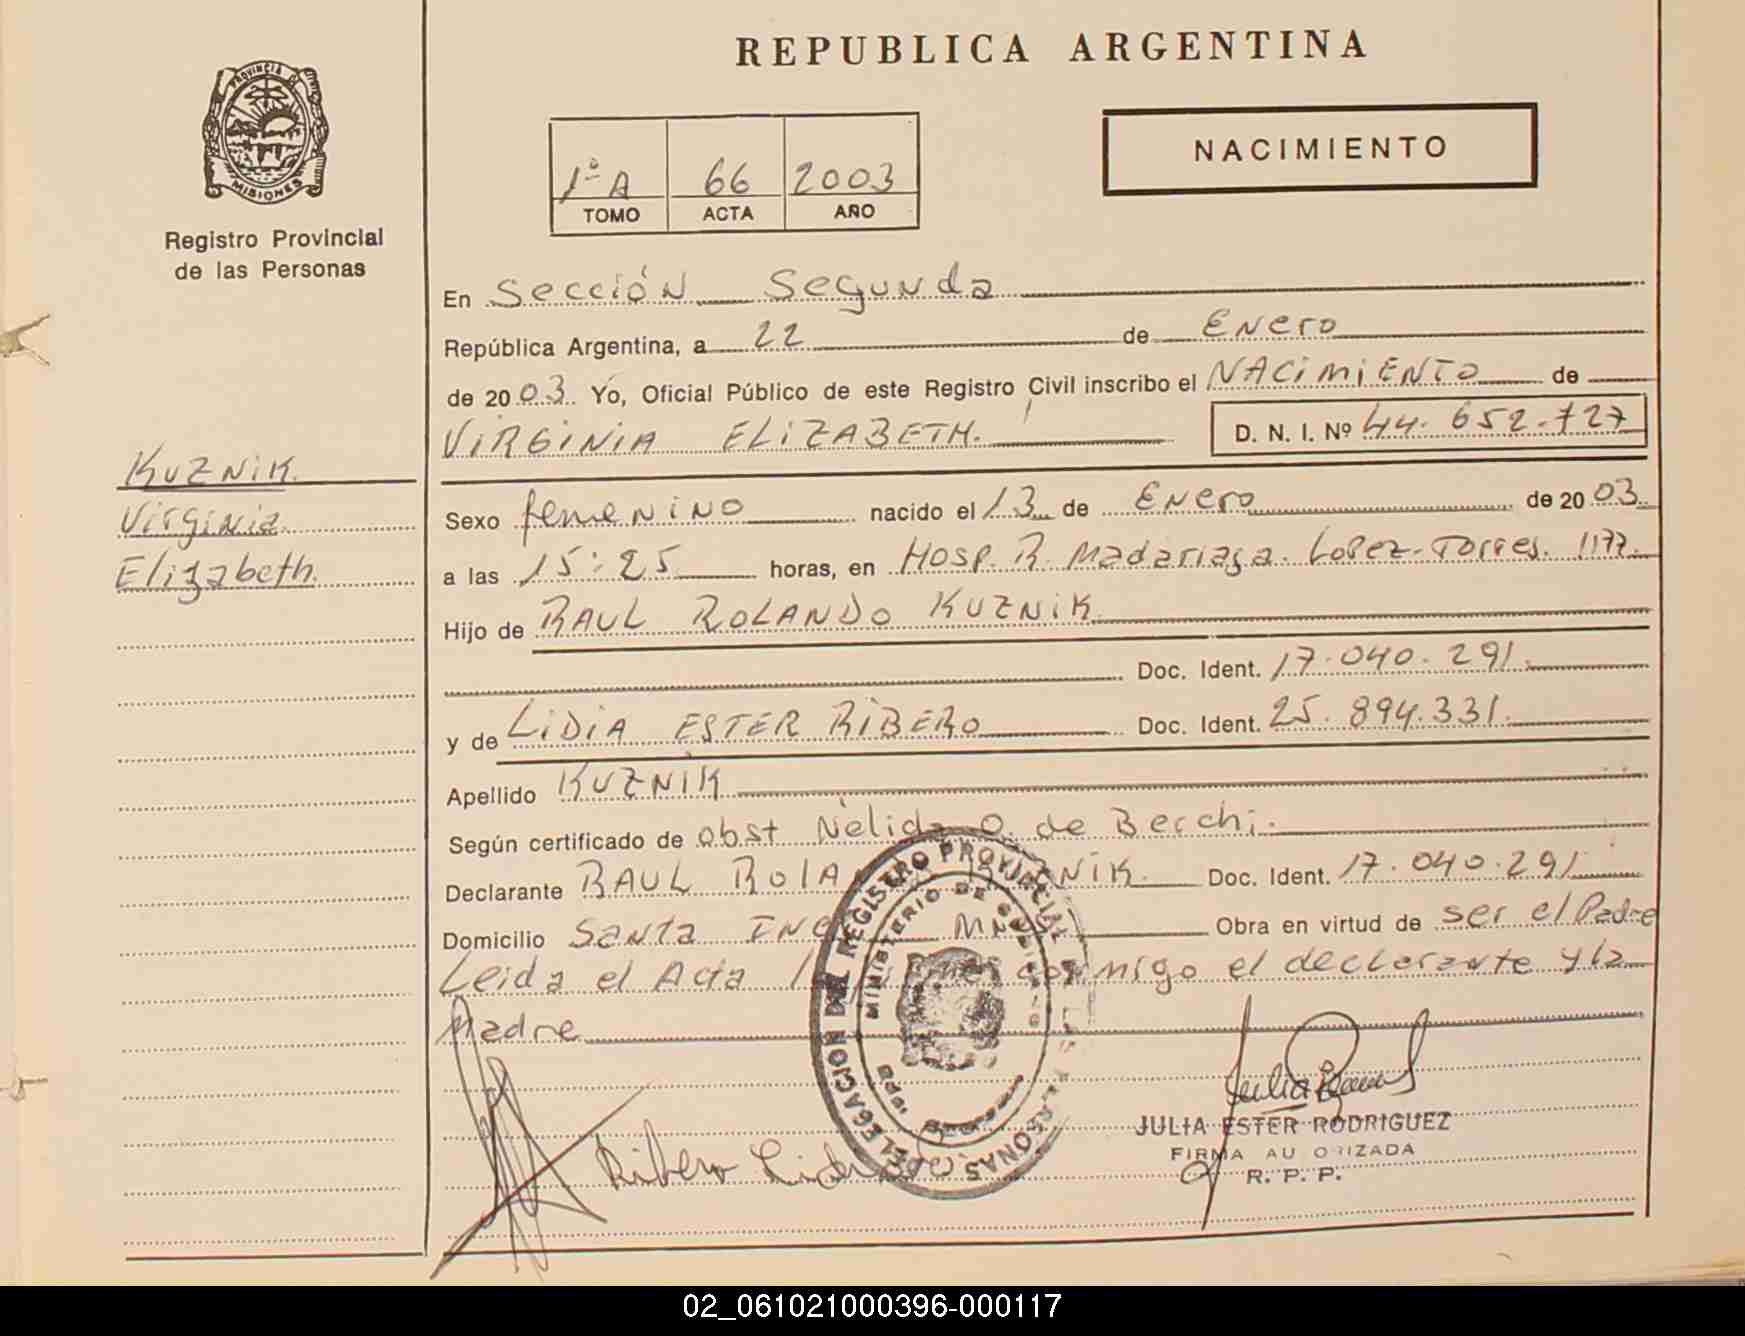 REPUBLICA ARGENTINA
PROVINCIA DE
MISIONES
Registro Provincial
de las Personas
1ª A 66 2003
TOMO ACTA AÑO
NACIMIENTO
En Sección Segunda
República Argentina, a 22 de Enero
de 2003 Yo, Oficial Público de este Registro Civil inscribo el NACIMIENTO de
VIRGINIA ELIZABETH. D. N. I. Nº 44.652.727
KUZNIK.
Virginia
Elizabeth.
Sexo femenino nacido el 13 de Enero de 2003
a las 15:25 horas, en Hosp. R. Madariaga. Lopez-Torres. 1177.
Hijo de RAUL ROLANDO KUZNIK.
Doc. Ident. 17.040.291.
y de LIDIA ESTER RIBERO Doc. Ident. 25.894.331.
Apellido KUZNIK
Según certificado de obst Nélida O. de Berchi.
Declarante RAUL ROLA NIK. Doc. Ident. 17.040.291
Domicilio Santa INE Obra en virtud de ser el Padre
Leida el Acta conmigo el declarante y la
Madre
DELEGACION DEL REGISTRO PROVINCIAL DE LAS PERSONAS
MINISTERIO DE GOBIERNO
Ribero Lidia
Julia
JULIA ESTER RODRIGUEZ
FIRMA AUTORIZADA
R. P. P.
02_061021000396-000117